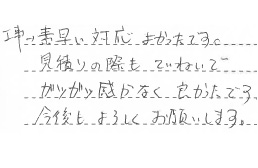 工事の素早い対応よかったです。
見積りの際も、ていねいで
ガツガツ感がなく良かったです
今後もよろしくお願いします。